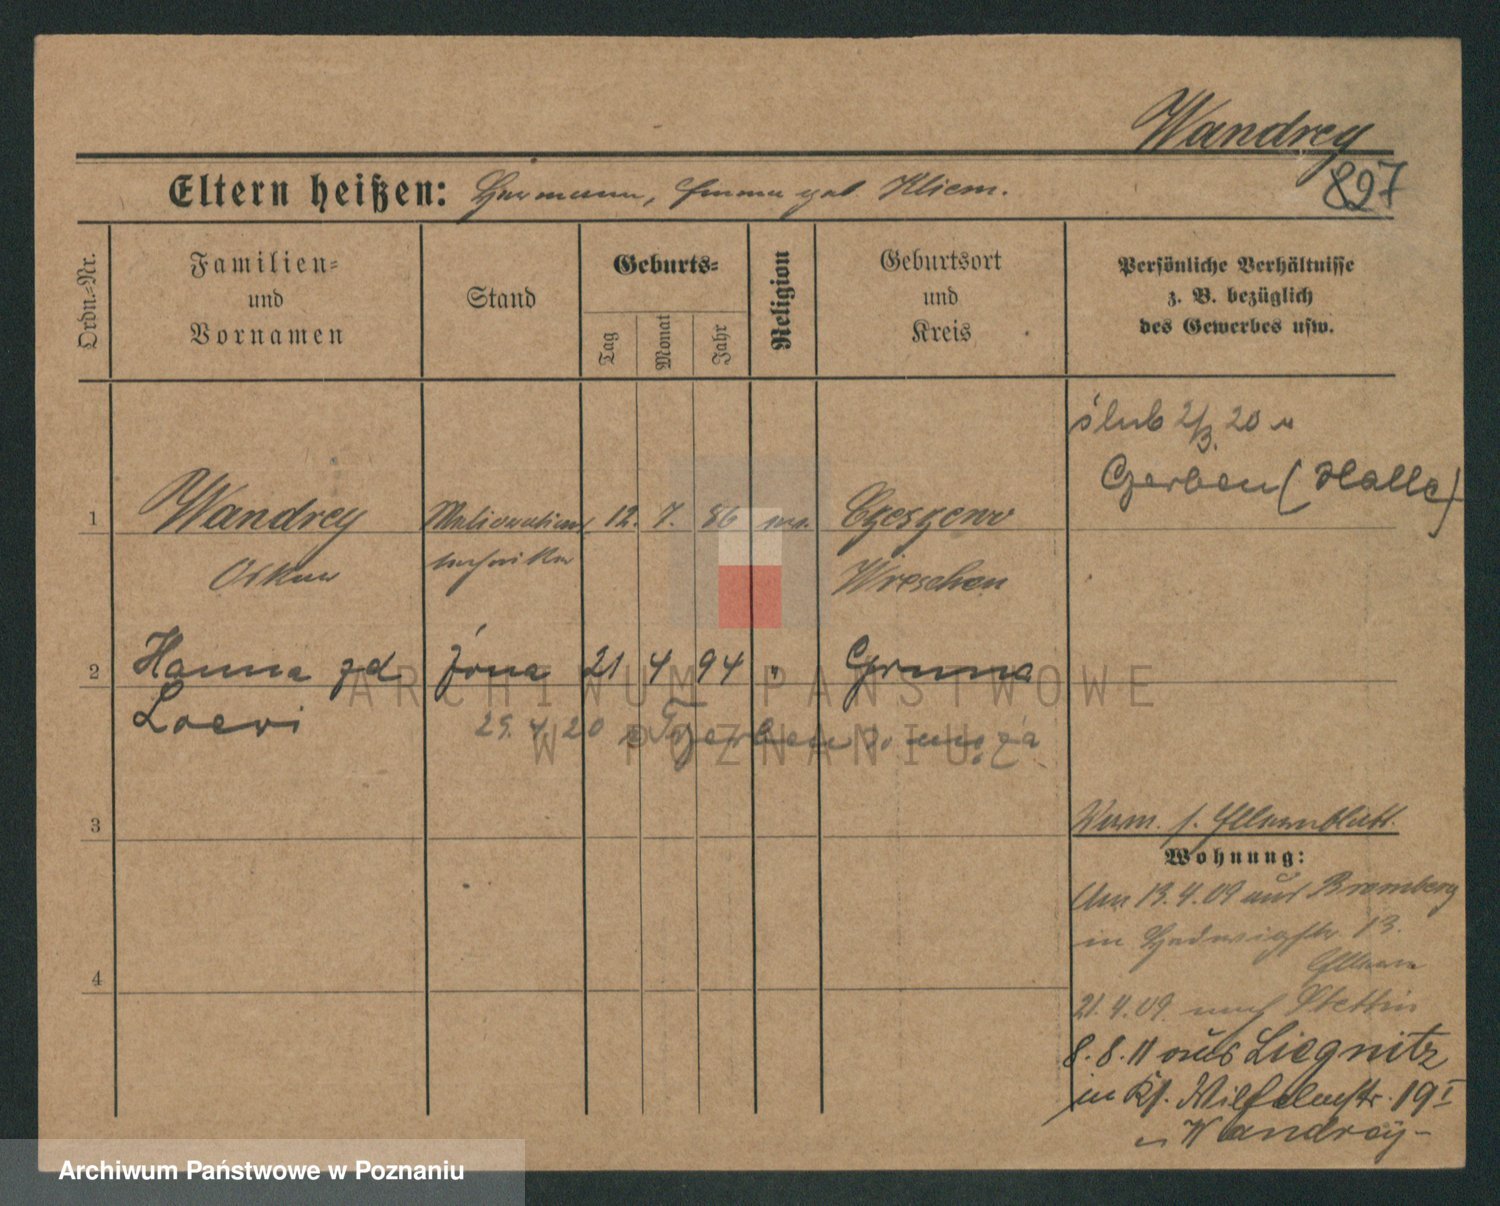 Wandrey
897
Eltern heißen: Hermann, Emma geb. Kliem.
Ordn.-Nr.
Familien-
und
Vornamen
Stand
Geburts-
Tag
Monat
Jahr
Religion
Geburtsort
und
Kreis
Persönliche Verhältnisse
z. B. bezüglich
des Gewerbes usw.
ślub 2/3. 20 w
Gerben (Halle)
1 Wandrey Meliorations 12. 7. 86 Czeszewo
Oskar techniker Wreschen
2 Hanna zd żona 21 4 94 " Gruna
Loewi
29. 4. 20
3
Verm. s. Elternblatt
Wohnung:
Am 13.4.09 aus Bromberg
in Hedwigstr. 13.
Eltern
4
21.4.09. nach Stettin
8.8.11 aus Liegnitz
in Kl. Wilhelmstr. 19 I
Wandrey
ARCHIWUM PAŃSTWOWE
W POZNANIU
Archiwum Państwowe w Poznaniu